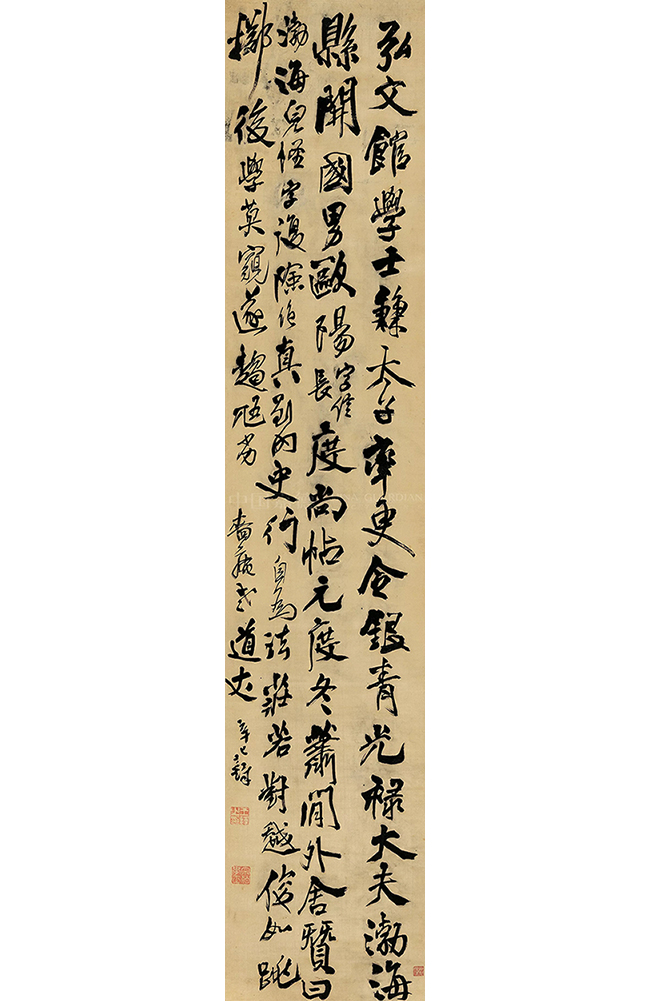 弘文館學士鎌太子率更令銀青光祿大夫渤海
縣開國男歐陽字信長度尚帖元度冬蕭閒外舍覽曰
渤海鬼怪字復險絕真到內史行自為法莊若對越俊如跳
擲後學莫窺遂趨尪劣 道丈 辛巳鐸
GUARDIAN